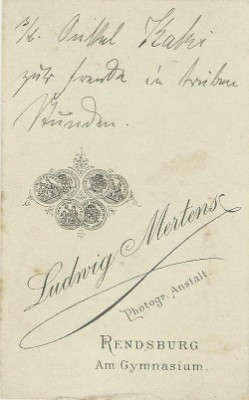 zur Freude in trüben
Stunden.
Ludwig Mertens
Photogr. Anstalt
RENDSBURG
Am Gymnasium.